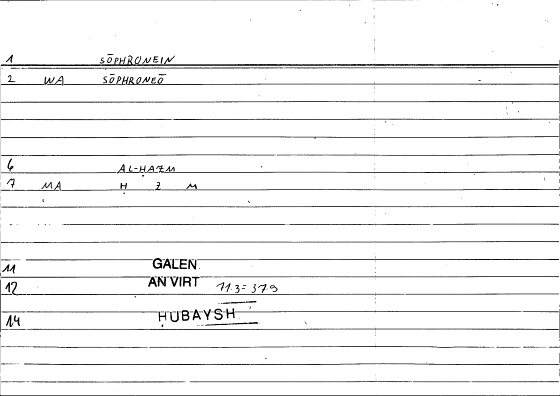 1 SŌPHRONEIN
2 WA SŌPHRONEŌ
6 AL-ḤAZM
7 MA Ḥ Z M
11 GALEN
12 AN VIRT 11.3=37.9
14 ḤUBAYSH